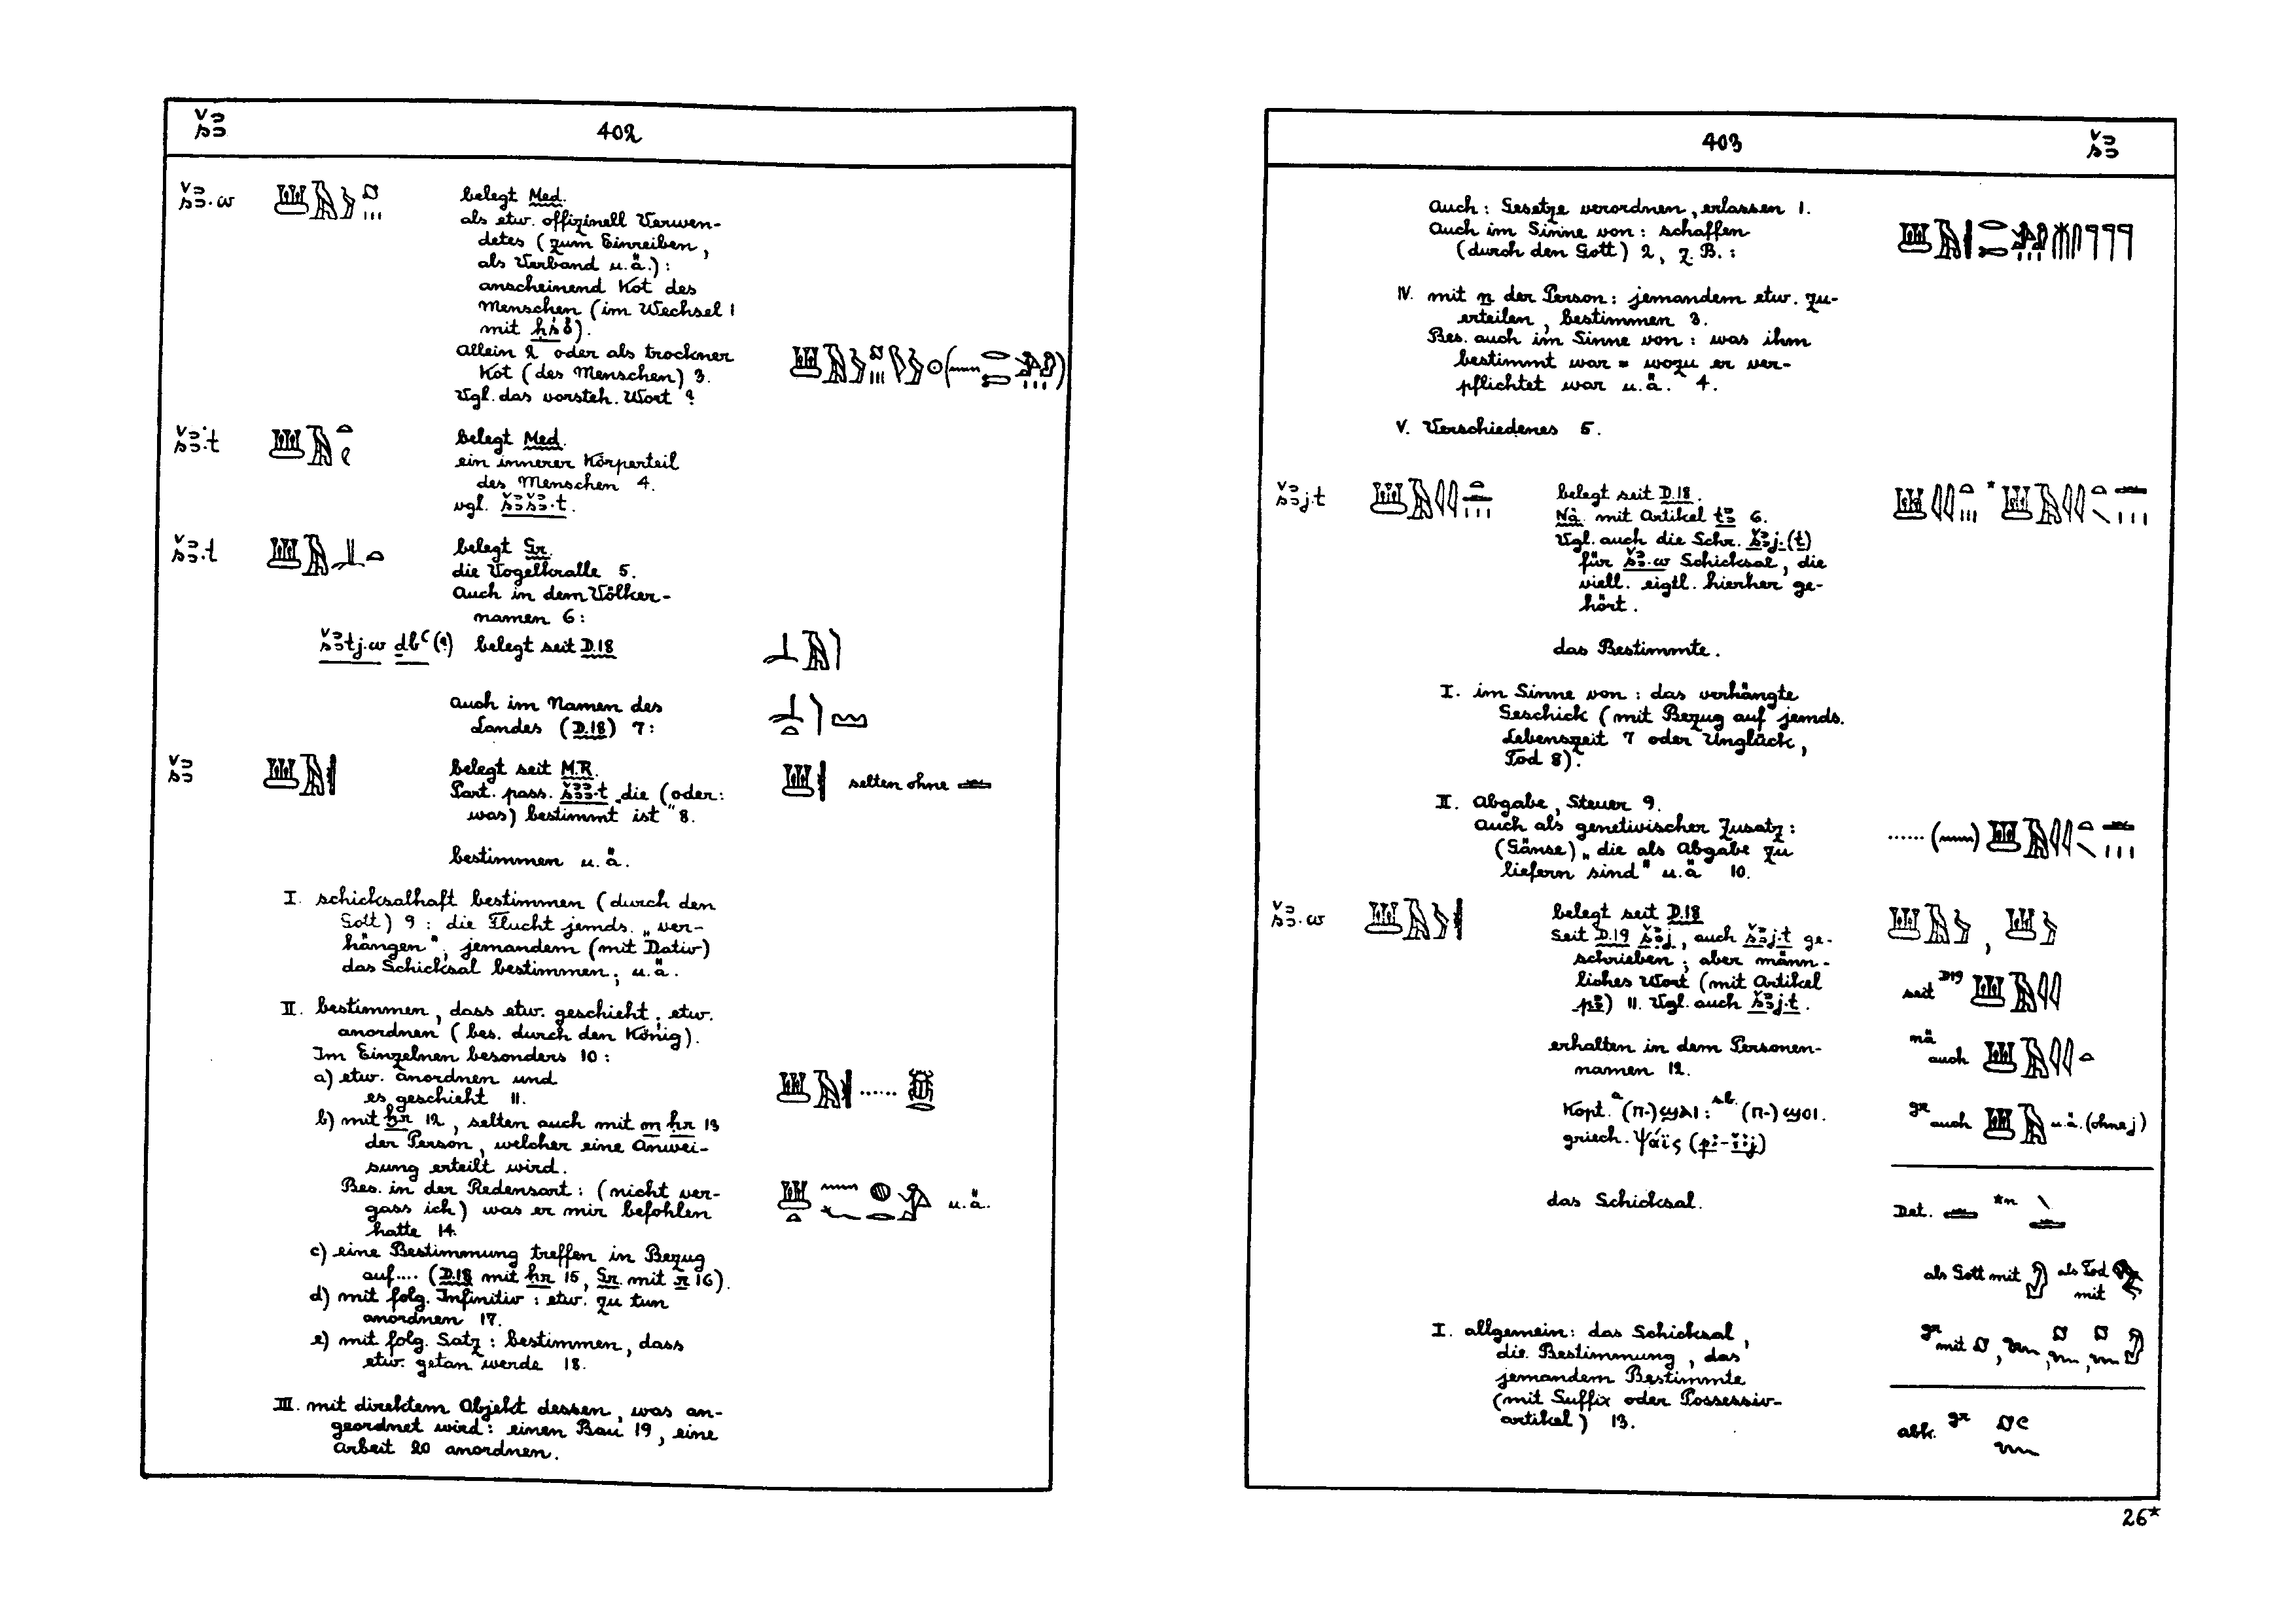 šꜣ
402
šꜣ.w
belegt Med.
als etw. offizinell Verwen-
detes (zum Einreiben,
als Verband u.ä.):
anscheinend Kot des
Menschen (im Wechsel 1
mit ḥś).
Allein 2 oder als trockner
Kot (des Menschen) 3.
Vgl. das vorsteh. Wort?
šꜣ.t
belegt Med.
ein innerer Körperteil
des Menschen 4.
vgl. šꜣšꜣ.t.
šꜣ.t
belegt Gr.
die Vogelkralle 5.
Auch in dem Völker-
namen 6:
šꜣtj.w dbꜥ(?) belegt seit D.18
Auch im Namen des
Landes (D.18) 7:
šꜣ
belegt seit M.R.
Part. pass. šꜣꜣ.t „die (oder:
was) bestimmt ist" 8.
selten ohne
bestimmen u.ä.
I. schicksalhaft bestimmen (durch den
Gott) 9: die Flucht jemds. „ver-
hängen"; jemandem (mit Dativ)
das Schicksal bestimmen; u.ä.
II. bestimmen, dass etw. geschieht; etw.
anordnen (bes. durch den König).
Im Einzelnen besonders 10:
a) etw. anordnen und
es geschieht 11.
b) mit ḫr 12, selten auch mit m ḥr 13
der Person, welcher eine Anwei-
sung erteilt wird.
Bes. in der Redensart: (nicht ver-
gass ich) was er mir befohlen
hatte 14.
u.ä.
c) eine Bestimmung treffen in Bezug
auf.... (D.18 mit ḥr 15, Gr. mit r 16).
d) mit folg. Infinitiv: etw. zu tun
anordnen 17.
e) mit folg. Satz: bestimmen, dass
etw. getan werde 18.
III. mit direktem Objekt dessen, was an-
geordnet wird: einen Bau 19, eine
Arbeit 20 anordnen.
403
šꜣ
Auch: Gesetze verordnen, erlassen 1.
Auch im Sinne von: schaffen
(durch den Gott) 2, z.B.:
IV. mit n der Person: jemandem etw. zu-
erteilen, bestimmen 3.
Bes. auch im Sinne von: was ihm
bestimmt war = wozu er ver-
pflichtet war u.ä. 4.
V. Verschiedenes 5.
šꜣj.t
belegt seit D.18.
Nä. mit Artikel tꜣ 6.
Vgl. auch die Schr. šꜣj.(t)
für šꜣ.w Schicksal, die
viell. eigtl. hierher ge-
hört.
das Bestimmte.
I. im Sinne von: das verhängte
Geschick (mit Bezug auf jemds.
Lebenszeit 7 oder Unglück,
Tod 8).
II. Abgabe, Steuer 9.
Auch als genetivischer Zusatz:
(Gänse) „die als Abgabe zu
liefern sind" u.ä 10.
šꜣ.w
belegt seit D.18
Seit D.19 šꜣj, auch šꜣj.t ge-
schrieben; aber männ-
liches Wort (mit Artikel
pꜣ) 11. Vgl. auch šꜣj.t.
seit D19
erhalten in dem Personen-
namen 12.
nä auch
Kopt. a (ⲡ-)ϣⲁⲓ: sb. (ⲡ-)ϣⲟⲓ.
griech. ψάϊς (pꜣ-šꜣj)
gr auch u.ä. (ohne j)
das Schicksal.
Det. *n
als Gott mit als Tod mit
I. allgemein: das Schicksal,
die Bestimmung, das
jemandem Bestimmte
(mit Suffix oder Possessiv-
artikel) 13.
gr mit
abk. gr
26*